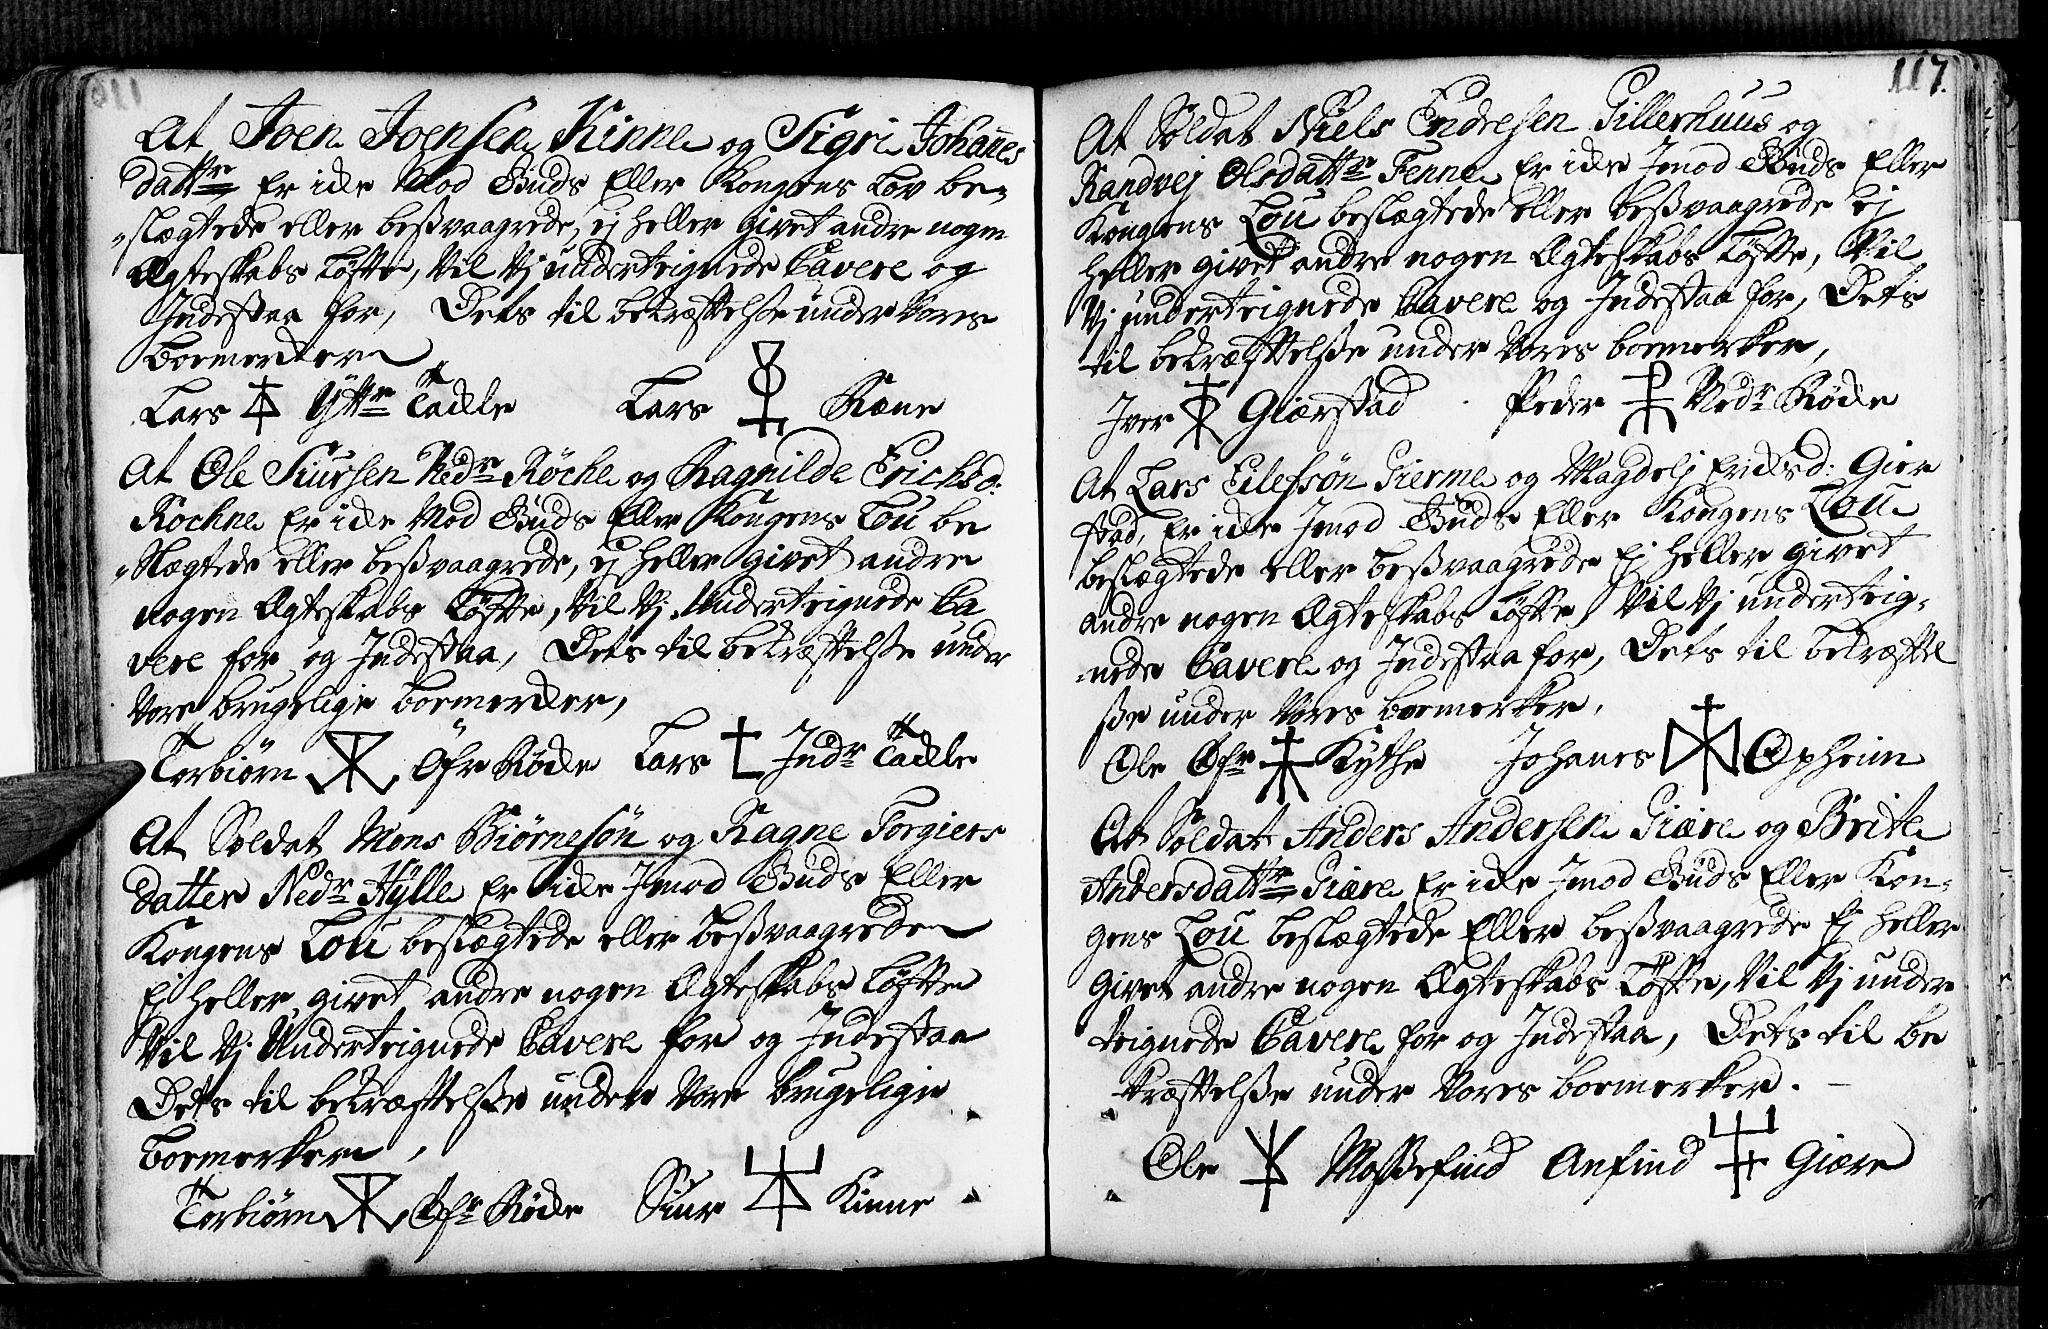 At Joen Joensen Kinne og Sigri Johannes
dattr Er icke Mod Guds Eller Kongens Lov be-
slægtede eller beßvaagrede, ej heller givet andre nogen
Ægteskabs Løfte, Vil Vj underteignede Cavere og
Indestaa for, Dets til bekræftelse under Vores
boemercker
Lars Yttr Tackle Lars Ræne
At Ole Siursen Nedr Røche og Ragnilde Erichsd:
Rochne Er icke Mod Guds Eller Kongens Lou be
Slægtede eller beßvaagrede, ej heller givet andre
nogen Ægteskabs Løfte, Vil Vj Underteignede Ca
vere for og Indestaa, Dets til bekræftelse under
Vore brugelige boemercker,
Torbiørn Øfr Røcke Lars Indr Tackle
At Soldat Mons Biørnesøn og Ragne Torgiers
datter Nedr Hylle Er icke Jmod Guds Eller
Kongens Lou beslægtede eller beßvaagrede
Ej heller givet andre nogen Ægteskabs Løfte
Vil Vj Underteignede Cavere for og Indestaa
Dets til bekræftelse under Vore brugelige
boemerker,
Torbiørn Øfr Røcke Siur Kinne
117.
At Soldat Niels Endresen Gillerhuus og
Randvej Olsdattr Tenne Er icke Jmod Guds Eller
Kongens Lou beslægtede eller beßvaagrede ej
heller givet andre nogen Ægteskabs Løfte, Vil
Vj underteignede Cavere og Indestaa for, Dets
til bekræftelse under Vores boemerker,
Iver Giærstad Peder Nedr Røcke
At Lars Eilefsøn Gierme og Magdelj Ericksd: Gier
stad, Er icke Jmod Guds Eller Kongens Lou
beslægtede eller beßvaagrede Ej heller givet
andre nogen Ægteskabs Løfte, Vil Vj underteig-
nede Cavere og Indestaa for, Dets til bekræftel
se under Vores boemerker,
Ole Øfr Kythe Johanes Opheim
At Soldat Anders Andersen Giære og Brite
Andersdattr Giære Er icke Jmod Guds Eller Kon-
gens Lou beslægtede Eller beßvaagrede Ej heller
Givet andre nogen Ægteskabs Løfte, Vil Vj under
teignede Cavere for og Indestaa, Dets til be
kræftelse under Vores boemerker.
Ole Mossefind Anfind Giære